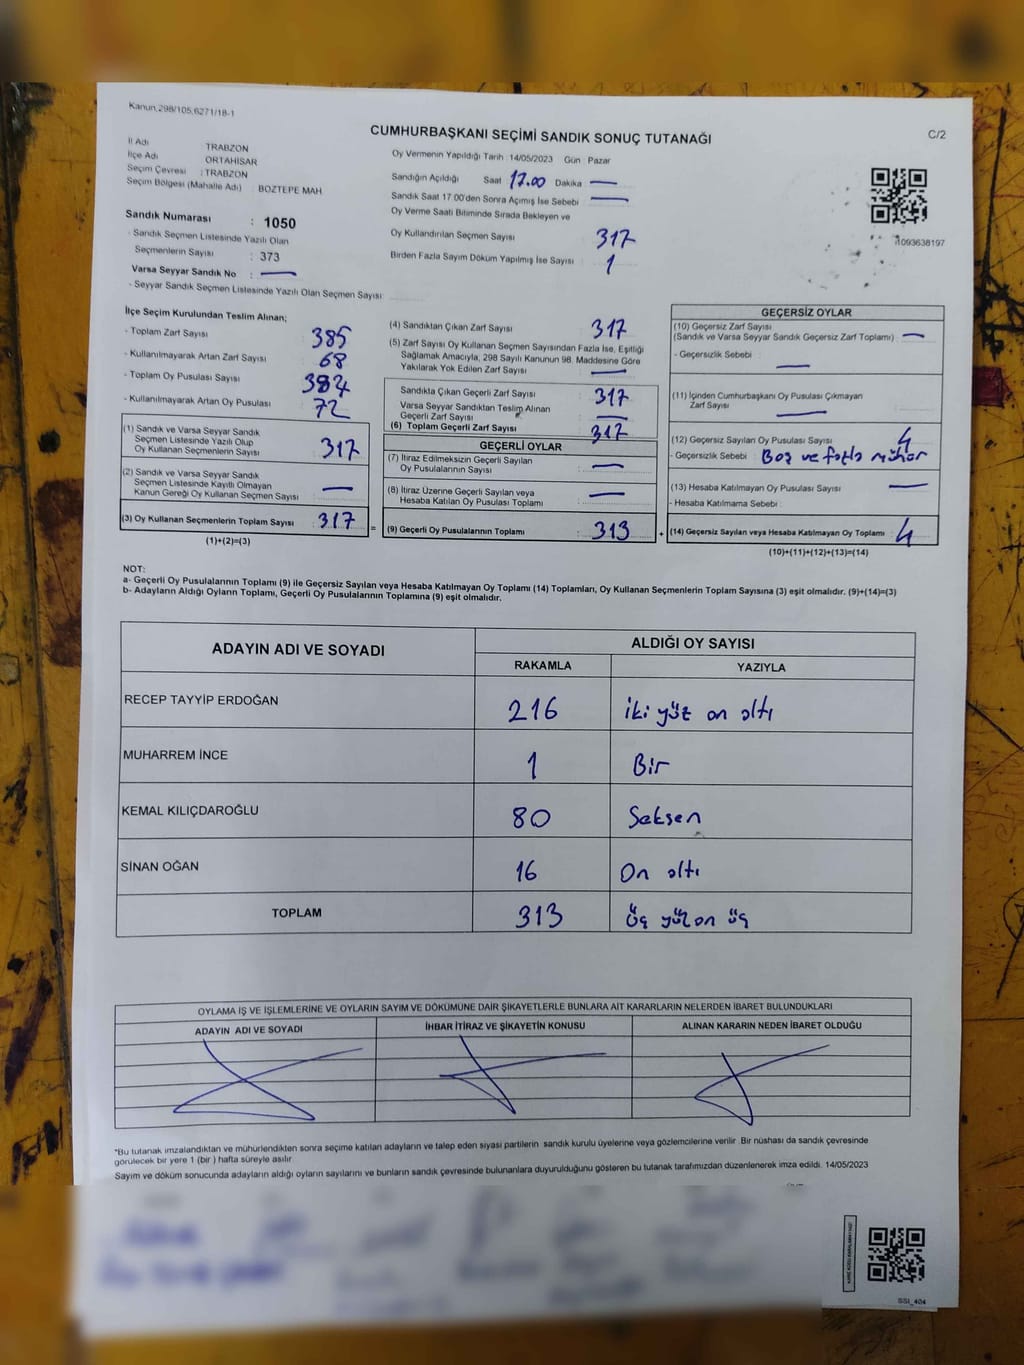 Kanun,298/105,6271/18-1
CUMHURBAŞKANI SEÇİMİ SANDIK SONUÇ TUTANAĞI
C/2
İl Adı TRABZON
İlçe Adı ORTAHİSAR
Seçim Çevresi : TRABZON
Seçim Bölgesi (Mahalle Adı) : BOZTEPE MAH
Oy Vermenin Yapıldığı Tarih 14/05/2023 Gün : Pazar
Sandığın Açıldığı Saat 17.00 Dakika —
Sandık Saat 17:00'den Sonra Açımış İse Sebebi —
Oy Verme Saati Bitiminde Sırada Bekleyen ve
Oy Kullandırılan Seçmen Sayısı 317
Birden Fazla Sayım Döküm Yapılmış İse Sayısı 1
1093638197
Sandık Numarası : 1050
- Sandık Seçmen Listesinde Yazılı Olan
Seçmenlerin Sayısı : 373
Varsa Seyyar Sandık No : —
- Seyyar Sandık Seçmen Listesinde Yazılı Olan Seçmen Sayısı
İlçe Seçim Kurulundan Teslim Alınan;
- Toplam Zarf Sayısı 385
- Kullanılmayarak Artan Zarf Sayısı 68
- Toplam Oy Pusulası Sayısı
- Kullanılmayarak Artan Oy Pusulası 72
(1) Sandık ve Varsa Seyyar Sandık
Seçmen Listesinde Yazılı Olup
Oy Kullanan Seçmenlerin Sayısı 317
(2) Sandık ve Varsa Seyyar Sandık
Seçmen Listesinde Kayıtlı Olmayan
Kanun Gereği Oy Kullanan Seçmen Sayısı —
(3) Oy Kullanan Seçmenlerin Toplam Sayısı : 317 =
(1)+(2)=(3)
(4) Sandıktan Çıkan Zarf Sayısı : 317
(5) Zarf Sayısı Oy Kullanan Seçmen Sayısından Fazla İse, Eşitliği
Sağlamak Amacıyla, 298 Sayılı Kanunun 98. Maddesine Göre
Yakılarak Yok Edilen Zarf Sayısı —
Sandıkta Çıkan Geçerli Zarf Sayısı : 317
Varsa Seyyar Sandıktan Teslim Alınan
Geçerli Zarf Sayısı —
(6) Toplam Geçerli Zarf Sayısı 317
GEÇERLİ OYLAR
(7) İtiraz Edilmeksizin Geçerli Sayılan
Oy Pusulalarının Sayısı —
(8) İtiraz Üzerine Geçerli Sayılan veya
Hesaba Katılan Oy Pusulası Toplamı —
(9) Geçerli Oy Pusulalarının Toplamı : 313 +
GEÇERSİZ OYLAR
(10) Geçersiz Zarf Sayısı
(Sandık ve Varsa Seyyar Sandık Geçersiz Zarf Toplamı) : —
- Geçersizlik Sebebi : —
(11) İçinden Cumhurbaşkanı Oy Pusulası Çıkmayan
Zarf Sayısı —
(12) Geçersiz Sayılan Oy Pusulası Sayısı 4
- Geçersizlik Sebebi : Boş ve fazla mühür
(13) Hesaba Katılmayan Oy Pusulası Sayısı —
- Hesaba Katılmama Sebebi
(14) Geçersiz Sayılan veya Hesaba Katılmayan Oy Toplamı : 4
(10)+(11)+(12)+(13)=(14)
NOT:
a- Geçerli Oy Pusulalarının Toplamı (9) ile Geçersiz Sayılan veya Hesaba Katılmayan Oy Toplamı (14) Toplamları, Oy Kullanan Seçmenlerin Toplam Sayısına (3) eşit olmalıdır. (9)+(14)=(3)
b- Adayların Aldığı Oyların Toplamı, Geçerli Oy Pusulalarının Toplamına (9) eşit olmalıdır.
ADAYIN ADI VE SOYADI ALDIĞI OY SAYISI
RAKAMLA YAZIYLA
RECEP TAYYİP ERDOĞAN 216 iki yüz on altı
MUHARREM İNCE 1 Bir
KEMAL KILIÇDAROĞLU 80 Seksen
SİNAN OĞAN 16 On altı
TOPLAM 313 üç yüz on üç
OYLAMA İŞ VE İŞLEMLERİNE VE OYLARIN SAYIM VE DÖKÜMÜNE DAİR ŞİKAYETLERLE BUNLARA AİT KARARLARIN NELERDEN İBARET BULUNDUKLARI
ADAYIN ADI VE SOYADI İHBAR İTİRAZ VE ŞİKAYETİN KONUSU ALINAN KARARIN NEDEN İBARET OLDUĞU
*Bu tutanak imzalandıktan ve mühürlendikten sonra seçime katılan adayların ve talep eden siyasi partilerin sandık kurulu üyelerine veya gözlemcilerine verilir .Bir nüshası da sandık çevresinde
görülecek bir yere 1 (bir ) hafta süreyle asılır.
Sayım ve döküm sonucunda adayların aldığı oyların sayılarını ve bunların sandık çevresinde bulunanlara duyurulduğunu gösteren bu tutanak tarafımızdan düzenlenerek imza edildi. 14/05/2023
SSİ_404